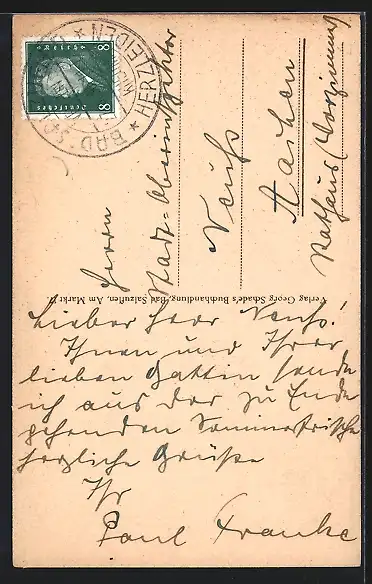 8 Deutsches Reich 8
BAD SALZUFLEN
HERZLEIDEN
Herrn
Stadt-Obersinspektor
Neuß
Aachen
Rathaus (Vorzimmer)
Verlag Georg Schade's Buchhandlung, Bad Salzuflen, Am Markt
Lieber Herr Neuß!
Ihnen und Ihrer
lieben Gattin sende
ich aus der zu Ende
gehenden Sommerfrische
herzliche Grüße
Ihr
Paul Franke